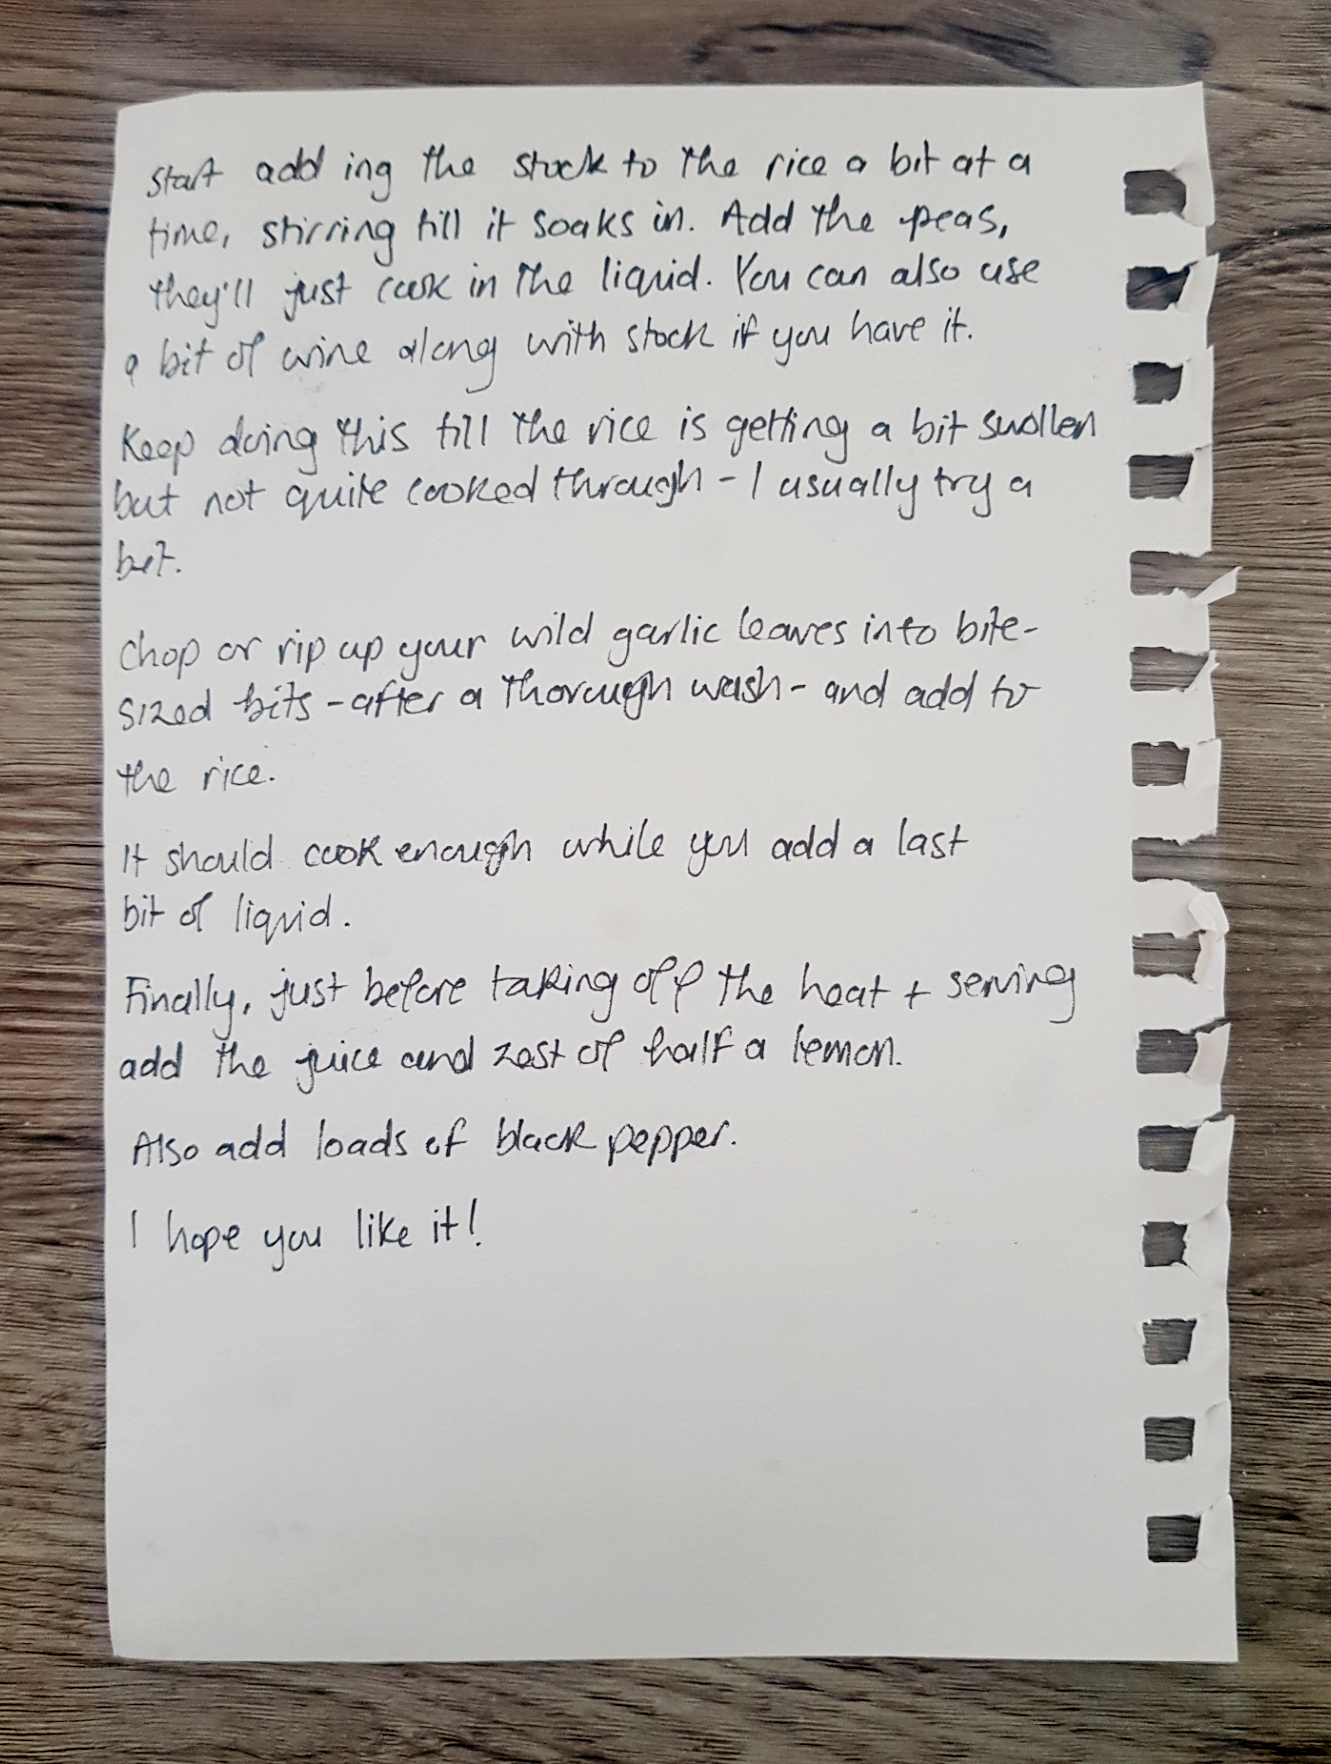 Start adding the stock to the rice a bit at a
time, stirring till it soaks in. Add the peas,
they'll just cook in the liquid. You can also use
a bit of wine along with stock if you have it.
Keep doing this till the rice is getting a bit swollen
but not quite cooked through - I usually try a
bit.
Chop or rip up your wild garlic leaves into bite-
sized bits - after a thorough wash - and add to
the rice.
It should cook enough while you add a last
bit of liquid.
Finally, just before taking off the heat + serving
add the juice and zest of half a lemon.
Also add loads of black pepper.
I hope you like it!